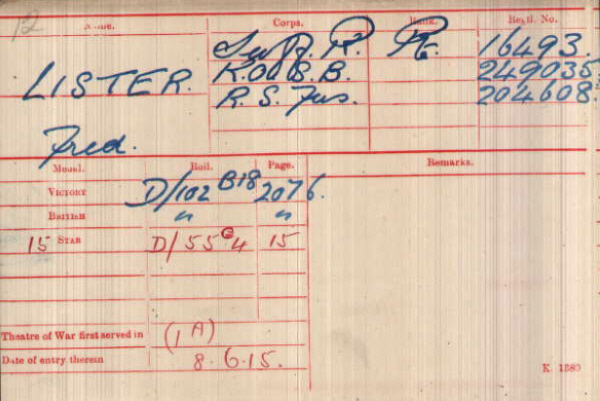 12
Name. Corps. Rank. Regtl. No.
R. Pte. 16493.
LISTER. K.O.S.B. 249035.
R. S. Fus. 204608.
Fred.
Medal. Roll. Page. Remarks.
VICTORY D/102 B18 2076.
BRITISH " "
15 STAR D/55 C4 15
Theatre of War first served in (1 A)
Date of entry therein 8.6.15.
K. 1380